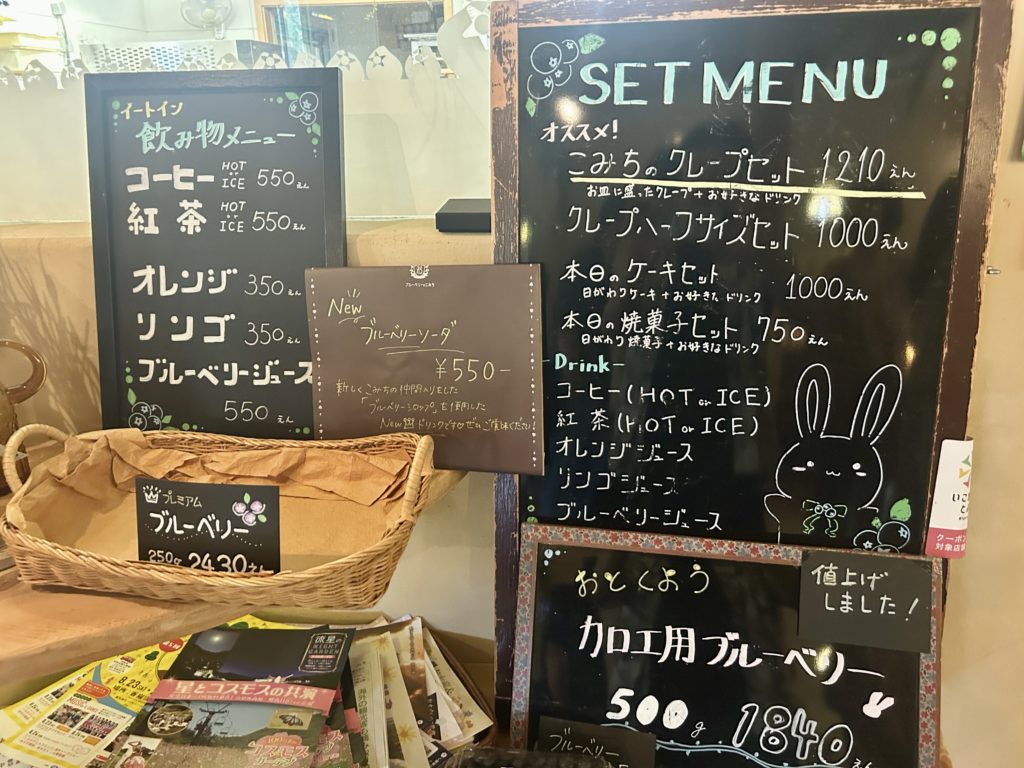 イートイン
飲み物メニュー
コーヒー HOT or ICE 550えん
紅茶 HOT or ICE 550えん
オレンジ 350えん
リンゴ 350えん
ブルーベリージュース
550えん
New
ブルーベリーソーダ
¥550-
新しくこみちの仲間入りをした
「ブルーベリーシロップ」を使用した
New ドリンクですぜひご賞味ください!
プレミアム
ブルーベリー
250g 2430えん
SET MENU
オススメ!
こみちのクレープセット 1210えん
お皿に盛ったクレープ+お好きなドリンク
クレープハーフサイズセット 1000えん
本日のケーキセット 1000えん
日がわりケーキ+お好きなドリンク
本日の焼菓子セット 750えん
日がわり焼菓子+お好きなドリンク
Drink-
コーヒー(HOT or ICE)
紅茶(HOT or ICE)
オレンジジュース
リンゴジュース
ブルーベリージュース
クーポン
対象店
おとくよう
値上げ
しました!
カロエ用ブルーベリー
500g 1840えん
ブルーベリー
流星の
NIGHT
GARDEN
星とコスモスの共演
8.23
コスモス